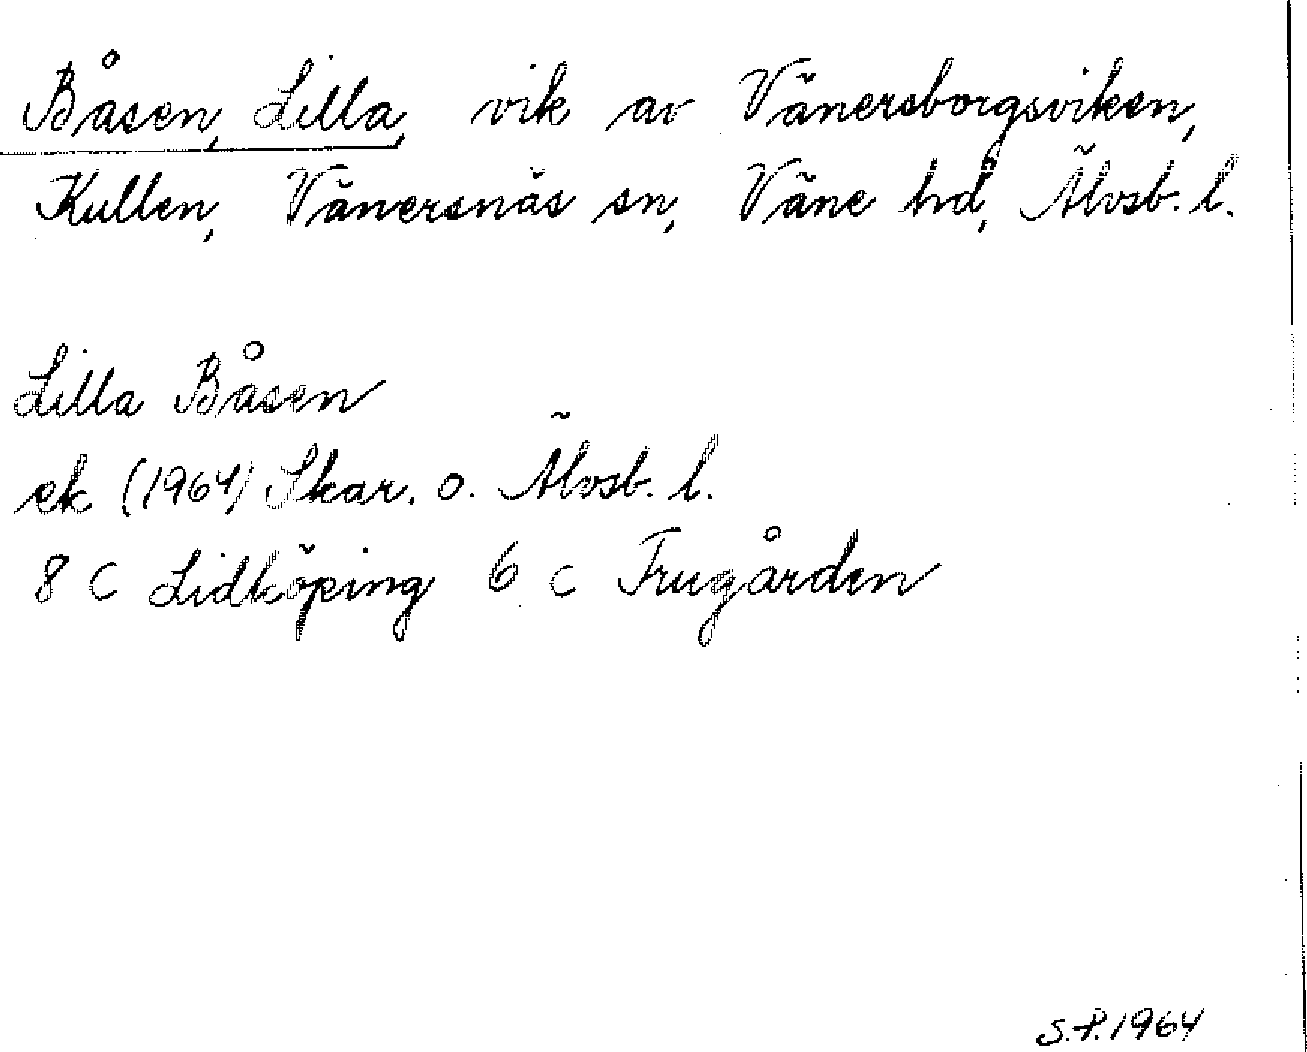 Båsen, Lilla, vik av Vänersborgsviken,
Kullen, Vänersnäs sn, Väne hd, Älvsb. l.
Lilla Båsen
ek (1964) Skar. o. Älvsb. l.
8 C Lidköping 6 c Frugården
S.P. 1964